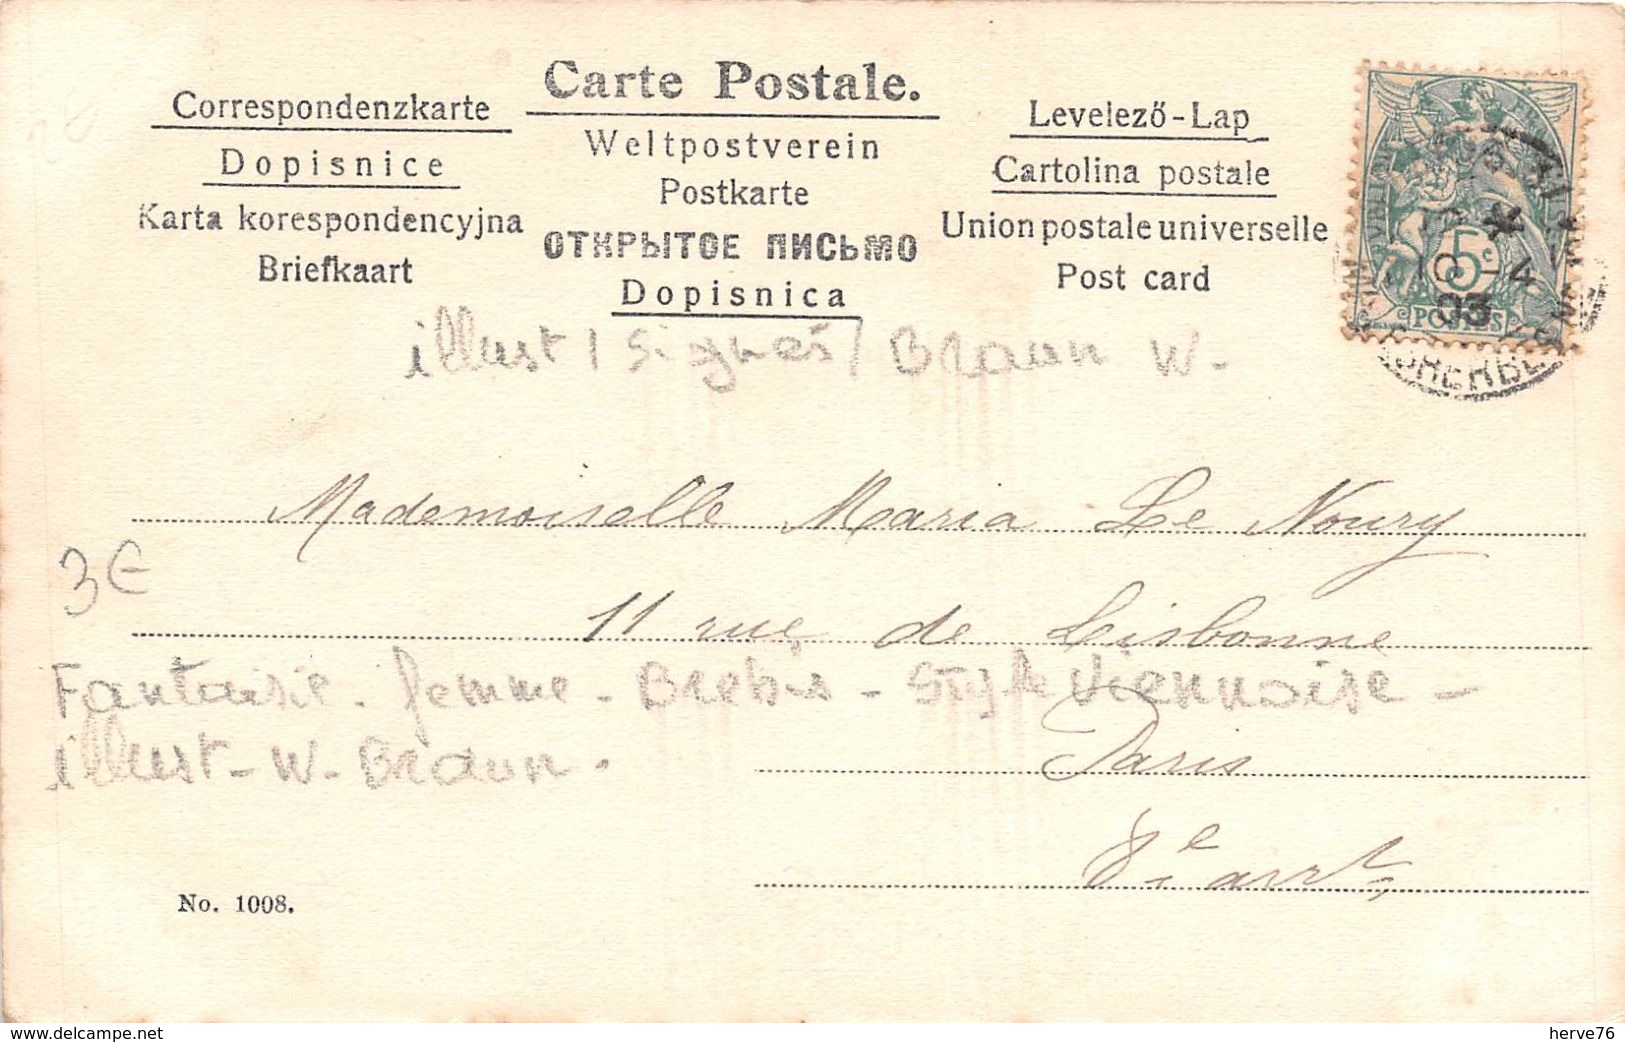 Carte Postale.
Correspondenzkarte
Dopisnice
Karta korespondencyjna
Briefkaart
Weltpostverein
Postkarte
ОТКРЫТОЕ ПИСЬМО
Dopisnica
Levelező-Lap
Cartolina postale
Union postale universelle
Post card
5c
POSTES
03
CHERBO
illust / Signés / Braun W-
Mademoiselle Maria Le Noury
3€
11 rue de Lisbonne
Fantaisie - femme - Brebis - Style Viennoise -
illust - W - Braun.
Paris
8e arrt
No. 1008.
www.delcampe.net
herve76